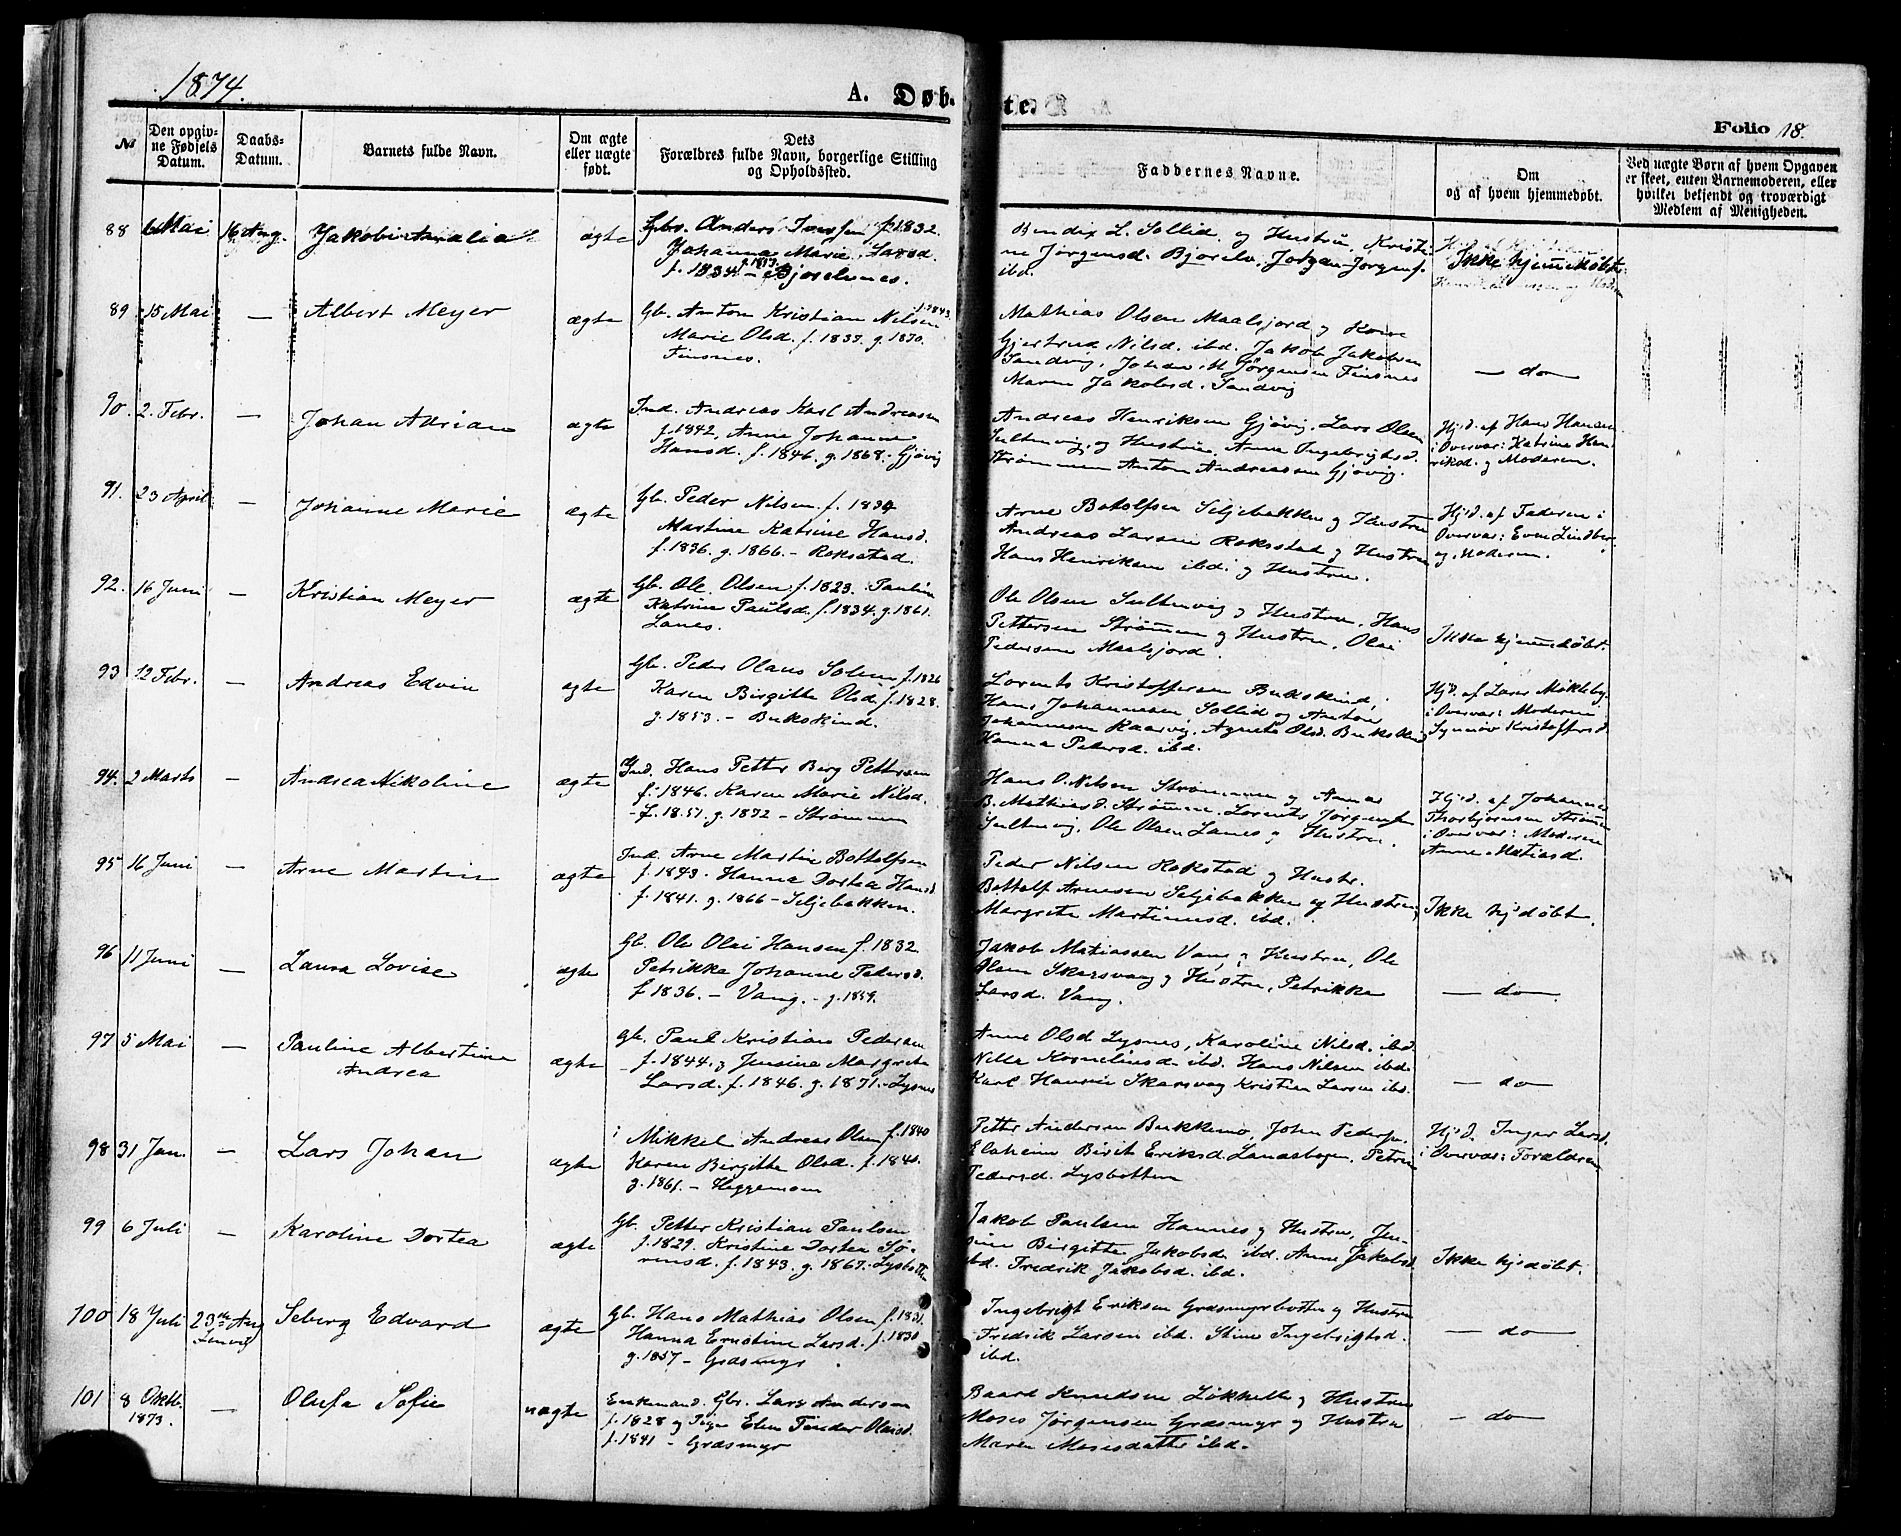 1874.
A. Døb-
te.
Folio 18.
№
Den opgiv-
ne Fødsels
Datum.
Daabs-
Datum.
Barnets fulde Navn.
Om ægte
eller uægte
født.
Dets
Forældres fulde Navn, borgerlige Stilling
og Opholdssted.
Faddernes Navne.
Om
og af hvem hjemmedøbt.
Ved uægte Børn af hvem Opgaven
er skeet, enten Barnemoderen, eller
hvilket bekjendt og troværdigt
Medlem af Menigheden.
88 6 Mai 16 Aug. Jakobine Amalia ægte
Gbr. Anders Iversen f. 1832.
Johanna Marie Larsd.
f. 1834. g. 1873. - Bjorelvnes.
Bendix L. Sollid og Hustru, Kristi-
ne Jørgensd. Bjorelv, Jørgen Jørgens.
ibd.
Ikke hjemmedøbt
89 15 Mai — Albert Meyer ægte
Gb. Anton Kristian Nilsen f. 1843.
Marie Olsd. f. 1837. g. 1870.
Finsnes.
Mathias Olsen Maalsjord og Kone
Gjertrud Nilsd. ibd. Jakob Jakobsen
Sandvig, Johan M Jørgensen Finsnes
Maren Jakobsd. Sandvig
— do —
90. 2. Febr. — Johan Adrian ægte
Ind. Andreas Karl Andreasen
f. 1842, Anne Johanne
Hansd. f. 1846. g. 1868 - Gjøvig
Andreas Henriksen Gjøvig, Lars Olsen
Sultenvig, og Hustru, Anne Ingebrigtsd.
Strømmen Anton Andreassen Gjøvig.
Hjd. af Hans Hansen
i Overvær: Katrine Hen-
riksd. og Moderen.
91. 23 April — Johanne Marie ægte
Gb. Peder Nilsen f. 1834
Martine Katrine Hansd.
f. 1836. g. 1866. - Roksstad.
Arne Botolfsen Seljebakken og Hustru
Andreas Larsen Roksstad og Hustru
Hans Henriksen ibd. og Hustru.
Hjd. af Faderen i
Overvær: Even Lindber
og Moderen.
92. 16 Juni — Kristian Meyer ægte
Gb. Ole Olsen f. 1823. Pauline
Katrine Paulsd. f. 1834. g. 1861.
Lanes.
Ole Olsen Sultenvig og Hustru, Hans
Pettersen Strømmen og Hustru, Olai
Pedersen Maalsjord.
Ikke hjemmedøbt.
93 12 Febr. — Andreas Edvin ægte
Gb. Peder Olaus Solem f. 1826
Karen Birgitte Olsd. f. 1828.
g. 1853. - Bukskind.
Lorents Kristoffersen Bukskind,
Hans Johannesen Sollid og Anton
Johannesen Kaarvig, Agnete Olsd. Bukskind
Hanna Petersd. ibd.
Hjd. af Lars Møkleby
i Overvær: Moderen
Synnøv Kristoffersd.
94. 2 Marts — Andrea Nikoline ægte
Ind. Hans Petter Berg Pettersen
f. 1846. Karen Marie Nilsd.
- f. 1851. g. 1872 - Strømmen
Hans O. Nilsen Strømmen og Anna
B. Mathiasd. Strømmen. Lorents Jørgensen
Sultenvig, Ole Olsen Lanes og Hustru.
Hjd. af Johannes
Thorbjørnsen Strømen
i Overvær: Moderen
Anne Matiasd.
95 16 Juni — Arne Martin ægte
Ind. Arne Martin Bottolfsen
f. 1843. Hanna Dortea Hansd
f. 1841. g. 1866 - Seljebakken.
Peder Nilsen Rokstad og Hustr.
Bottolf Arnesen Seljebakken og Hustru,
Margrete Martinusd. ibd.
Ikke hjdøbt.
96 11 Juni — Laura Lovise ægte
Gb. Ole Olai Hansen f. 1832
Petrikke Johanne Pedersd.
f 1836. - Vang. - g. 1859.
Jakob Matiassen Vang og Hustru, Ole
Olsen Skarsvaag og Hustru, Petrikke
Larsd. Vang.
— do —
97 5 Mai — Pauline Albertine
Andrea ægte
Gb. Paul Kristian Pedersen
f. 1844. og Jensine Margrete
Larsd. f. 1846. g. 1871. - Lysnes
Anne Olsd Lysnes, Karoline Nilsd. ibd
Nille Korneliusd. ibd. Hans Nilsen ibd.
Karl Hansen Skarsvaag Kristian Larsen ibd.
— do
98 31 Jan. — Lars Johan ægte
Mikkel Andreas Olsen f. 1840
Karen Birgitte Olsd. f. 1840.
g. 1861. - Heggemoen
Petter Andersen Bukkemo, John Peders.
Elvheim Birit Eriksd. Landsbogen. Petrine
Pedersd. Lysbotten
Hjd. Inger Larsd.
i Overvær: Forældrene
99 6 Juli — Karoline Dortea ægte
Gb. Petter Kristian Paulsen
f. 1829. Kristine Dortea Sø-
rensd. f. 1843. g. 1867. - Lysbotten
Jakob Paulsen Hannes og Hustru, Jen-
sine Birgitte Jakobsd. ibd. Anne Jakobsd.
ibd. Fredrik Jakobsd. ibd.
Ikke hjdøbt.
100 18 Juli 23de Aug Seberg Edvard ægte
Gb. Hans Mathias Olsen f. 1831.
Hanna Ernstine Larsd. f. 1830
g. 1857 - Græsmyr
Ingebrigt Eriksen Græsmyrbotten og Hustru
Fredrik Larsen ibd. Stine Ingebrigtsd.
ibd.
— do —
101 8 Oktb. 1873. — Olufa Sofie uægte
Enkemand. Gbr. Lars Andersen
f. 1828 og Pige Elen Tinder Olaisd.
f. 1841 - Græsmyr
Baard Knudsen Løkkelle og Hustru
Moses Jørgensen Græsmyr og Hustru
Maren Mosesdatter ibd.
— do —